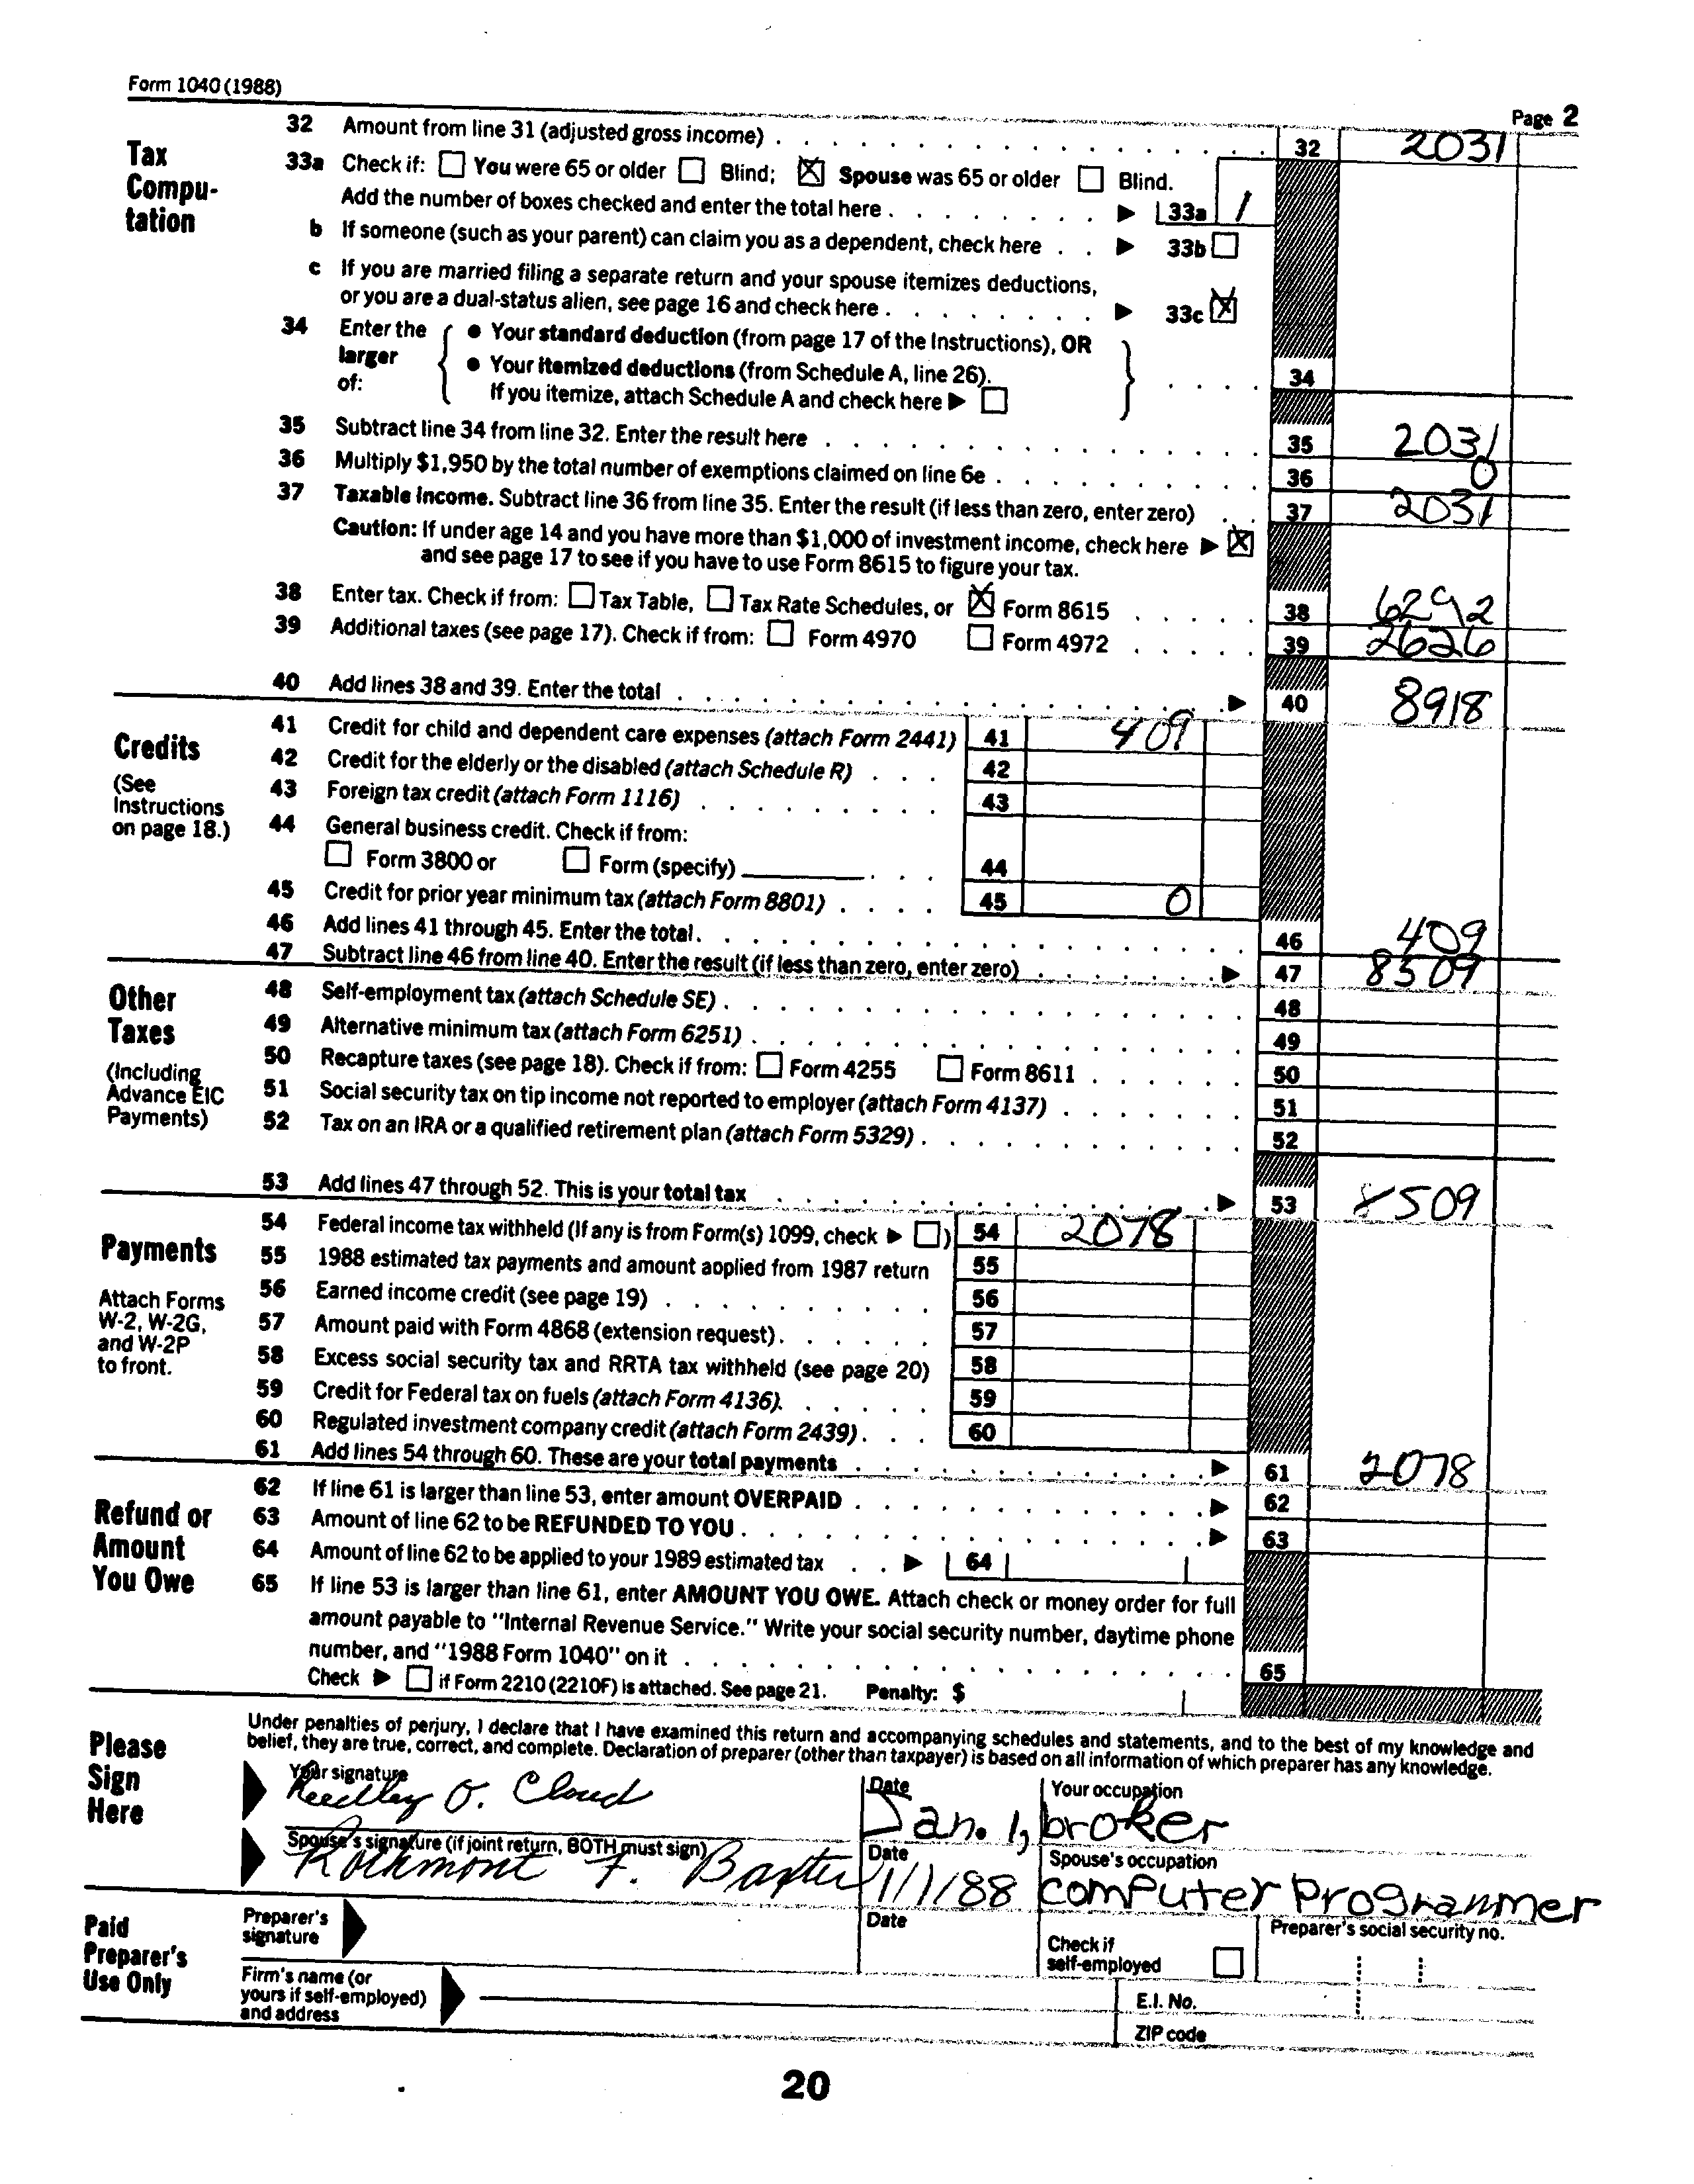 Form 1040 (1988)
Page 2
Tax Compu-tation
32 Amount from line 31 (adjusted gross income) . . . . . . . . . . . . . . . . 32 2031
33a Check if: ☐ You were 65 or older ☐ Blind; ☒ Spouse was 65 or older ☐ Blind.
Add the number of boxes checked and enter the total here . . . . . . . . ▶ 33a 1
b If someone (such as your parent) can claim you as a dependent, check here . . ▶ 33b ☐
c If you are married filing a separate return and your spouse itemizes deductions,
or you are a dual-status alien, see page 16 and check here . . . . . . . . ▶ 33c ☒
34 Enter the larger of: { ● Your standard deduction (from page 17 of the Instructions), OR
● Your itemized deductions (from Schedule A, line 26).
If you itemize, attach Schedule A and check here ▶ ☐ } . . . . 34
35 Subtract line 34 from line 32. Enter the result here . . . . . . . . . . . . . . 35 2031
36 Multiply $1,950 by the total number of exemptions claimed on line 6e . . . . . . . . . . 36 0
37 Taxable income. Subtract line 36 from line 35. Enter the result (if less than zero, enter zero) . . 37 2031
Caution: If under age 14 and you have more than $1,000 of investment income, check here ▶ ☒
and see page 17 to see if you have to use Form 8615 to figure your tax.
38 Enter tax. Check if from: ☐ Tax Table, ☐ Tax Rate Schedules, or ☒ Form 8615 . . . . . 38 6292
39 Additional taxes (see page 17). Check if from: ☐ Form 4970 ☐ Form 4972 . . . . . 39 2626
40 Add lines 38 and 39. Enter the total . . . . . . . . . . . . . . . . . . ▶ 40 8918
Credits
(See Instructions on page 18.)
41 Credit for child and dependent care expenses (attach Form 2441) 41 409
42 Credit for the elderly or the disabled (attach Schedule R) . . . 42
43 Foreign tax credit (attach Form 1116) . . . . . . . . . 43
44 General business credit. Check if from:
☐ Form 3800 or ☐ Form (specify) ________ . . . 44
45 Credit for prior year minimum tax (attach Form 8801) . . . . 45 0
46 Add lines 41 through 45. Enter the total. . . . . . . . . . . . . . . . . . . 46 409
47 Subtract line 46 from line 40. Enter the result (if less than zero, enter zero) . . . . . . ▶ 47 8509
Other Taxes
(Including Advance EIC Payments)
48 Self-employment tax (attach Schedule SE) . . . . . . . . . . . . . . . . . 48
49 Alternative minimum tax (attach Form 6251) . . . . . . . . . . . . . . . . 49
50 Recapture taxes (see page 18). Check if from: ☐ Form 4255 ☐ Form 8611 . . . . . . 50
51 Social security tax on tip income not reported to employer (attach Form 4137) . . . . . . 51
52 Tax on an IRA or a qualified retirement plan (attach Form 5329) . . . . . . . . . . . 52
53 Add lines 47 through 52. This is your total tax . . . . . . . . . . . . . . ▶ 53 8509
Payments
Attach Forms W-2, W-2G, and W-2P to front.
54 Federal income tax withheld (If any is from Form(s) 1099, check ▶ ☐) 54 2078
55 1988 estimated tax payments and amount applied from 1987 return 55
56 Earned income credit (see page 19) . . . . . . . . . . 56
57 Amount paid with Form 4868 (extension request) . . . . . . 57
58 Excess social security tax and RRTA tax withheld (see page 20) 58
59 Credit for Federal tax on fuels (attach Form 4136). . . . . . 59
60 Regulated investment company credit (attach Form 2439) . . . 60
61 Add lines 54 through 60. These are your total payments . . . . . . . . . . . . ▶ 61 2078
Refund or Amount You Owe
62 If line 61 is larger than line 53, enter amount OVERPAID . . . . . . . . . . . . ▶ 62
63 Amount of line 62 to be REFUNDED TO YOU . . . . . . . . . . . . . . . . ▶ 63
64 Amount of line 62 to be applied to your 1989 estimated tax . . ▶ 64
65 If line 53 is larger than line 61, enter AMOUNT YOU OWE. Attach check or money order for full
amount payable to "Internal Revenue Service." Write your social security number, daytime phone
number, and "1988 Form 1040" on it . . . . . . . . . . . . . . . . . . 65
Check ▶ ☐ if Form 2210 (2210F) is attached. See page 21. Penalty: $
Please Sign Here
Under penalties of perjury, I declare that I have examined this return and accompanying schedules and statements, and to the best of my knowledge and
belief, they are true, correct, and complete. Declaration of preparer (other than taxpayer) is based on all information of which preparer has any knowledge.
Your signature Date Your occupation
Reedley O. Cloud Jan. 1, broker
Spouse's signature (if joint return, BOTH must sign) Date Spouse's occupation
Rothmont F. Baxter 1/1/88 computer Programmer
Paid Preparer's Use Only
Preparer's signature Date Check if self-employed ☐ Preparer's social security no.
Firm's name (or yours if self-employed) and address
E.I. No.
ZIP code
20